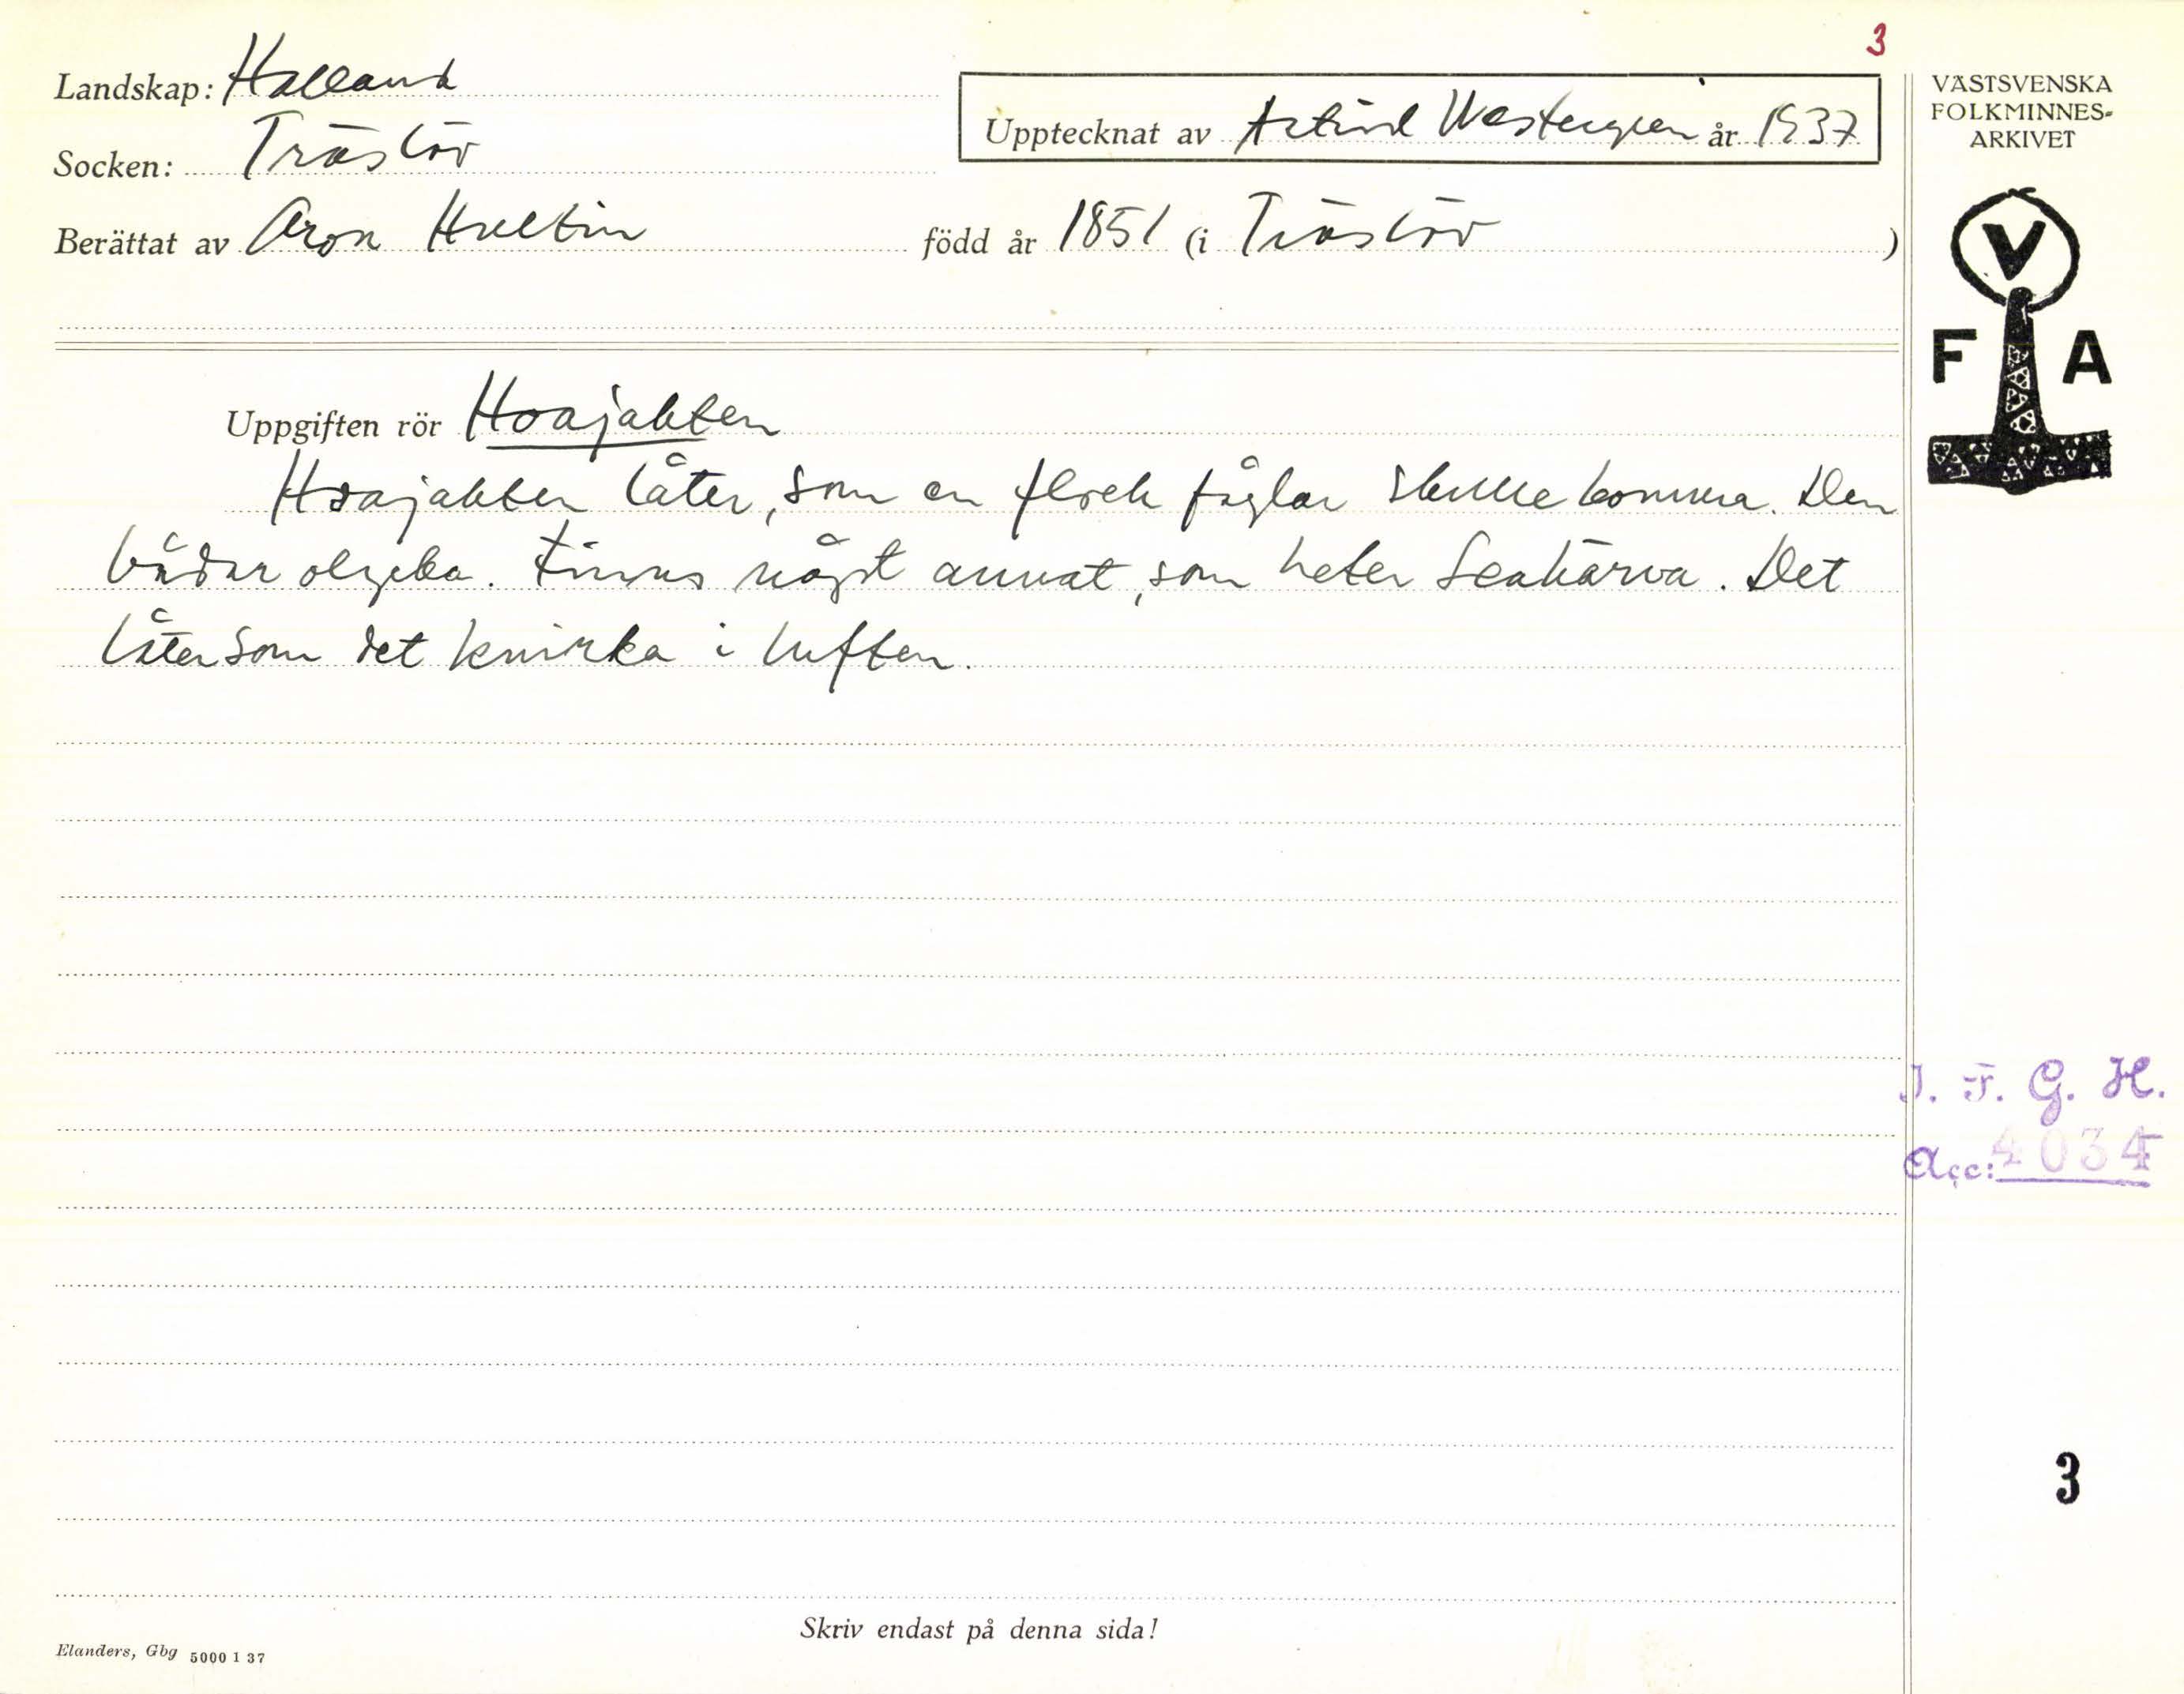 3
Landskap: Halland
Socken: Träslöv
Upptecknat av Astrid Westergren år 1937
Berättat av Aron Hultin född år 1851 (i Träslöv)
VÄSTSVENSKA
FOLKMINNES-
ARKIVET
V
F A
Uppgiften rör Hoajakten
Hoajakten låter, som en flock fåglar skulle komma. Den
bådar olycka. Finns någt annat, som heter Leahärva. Det
låter som det knirka i luften.
I. F. G. H.
Acc: 4034
3
Skriv endast på denna sida!
Elanders, Gbg 5000 1 37